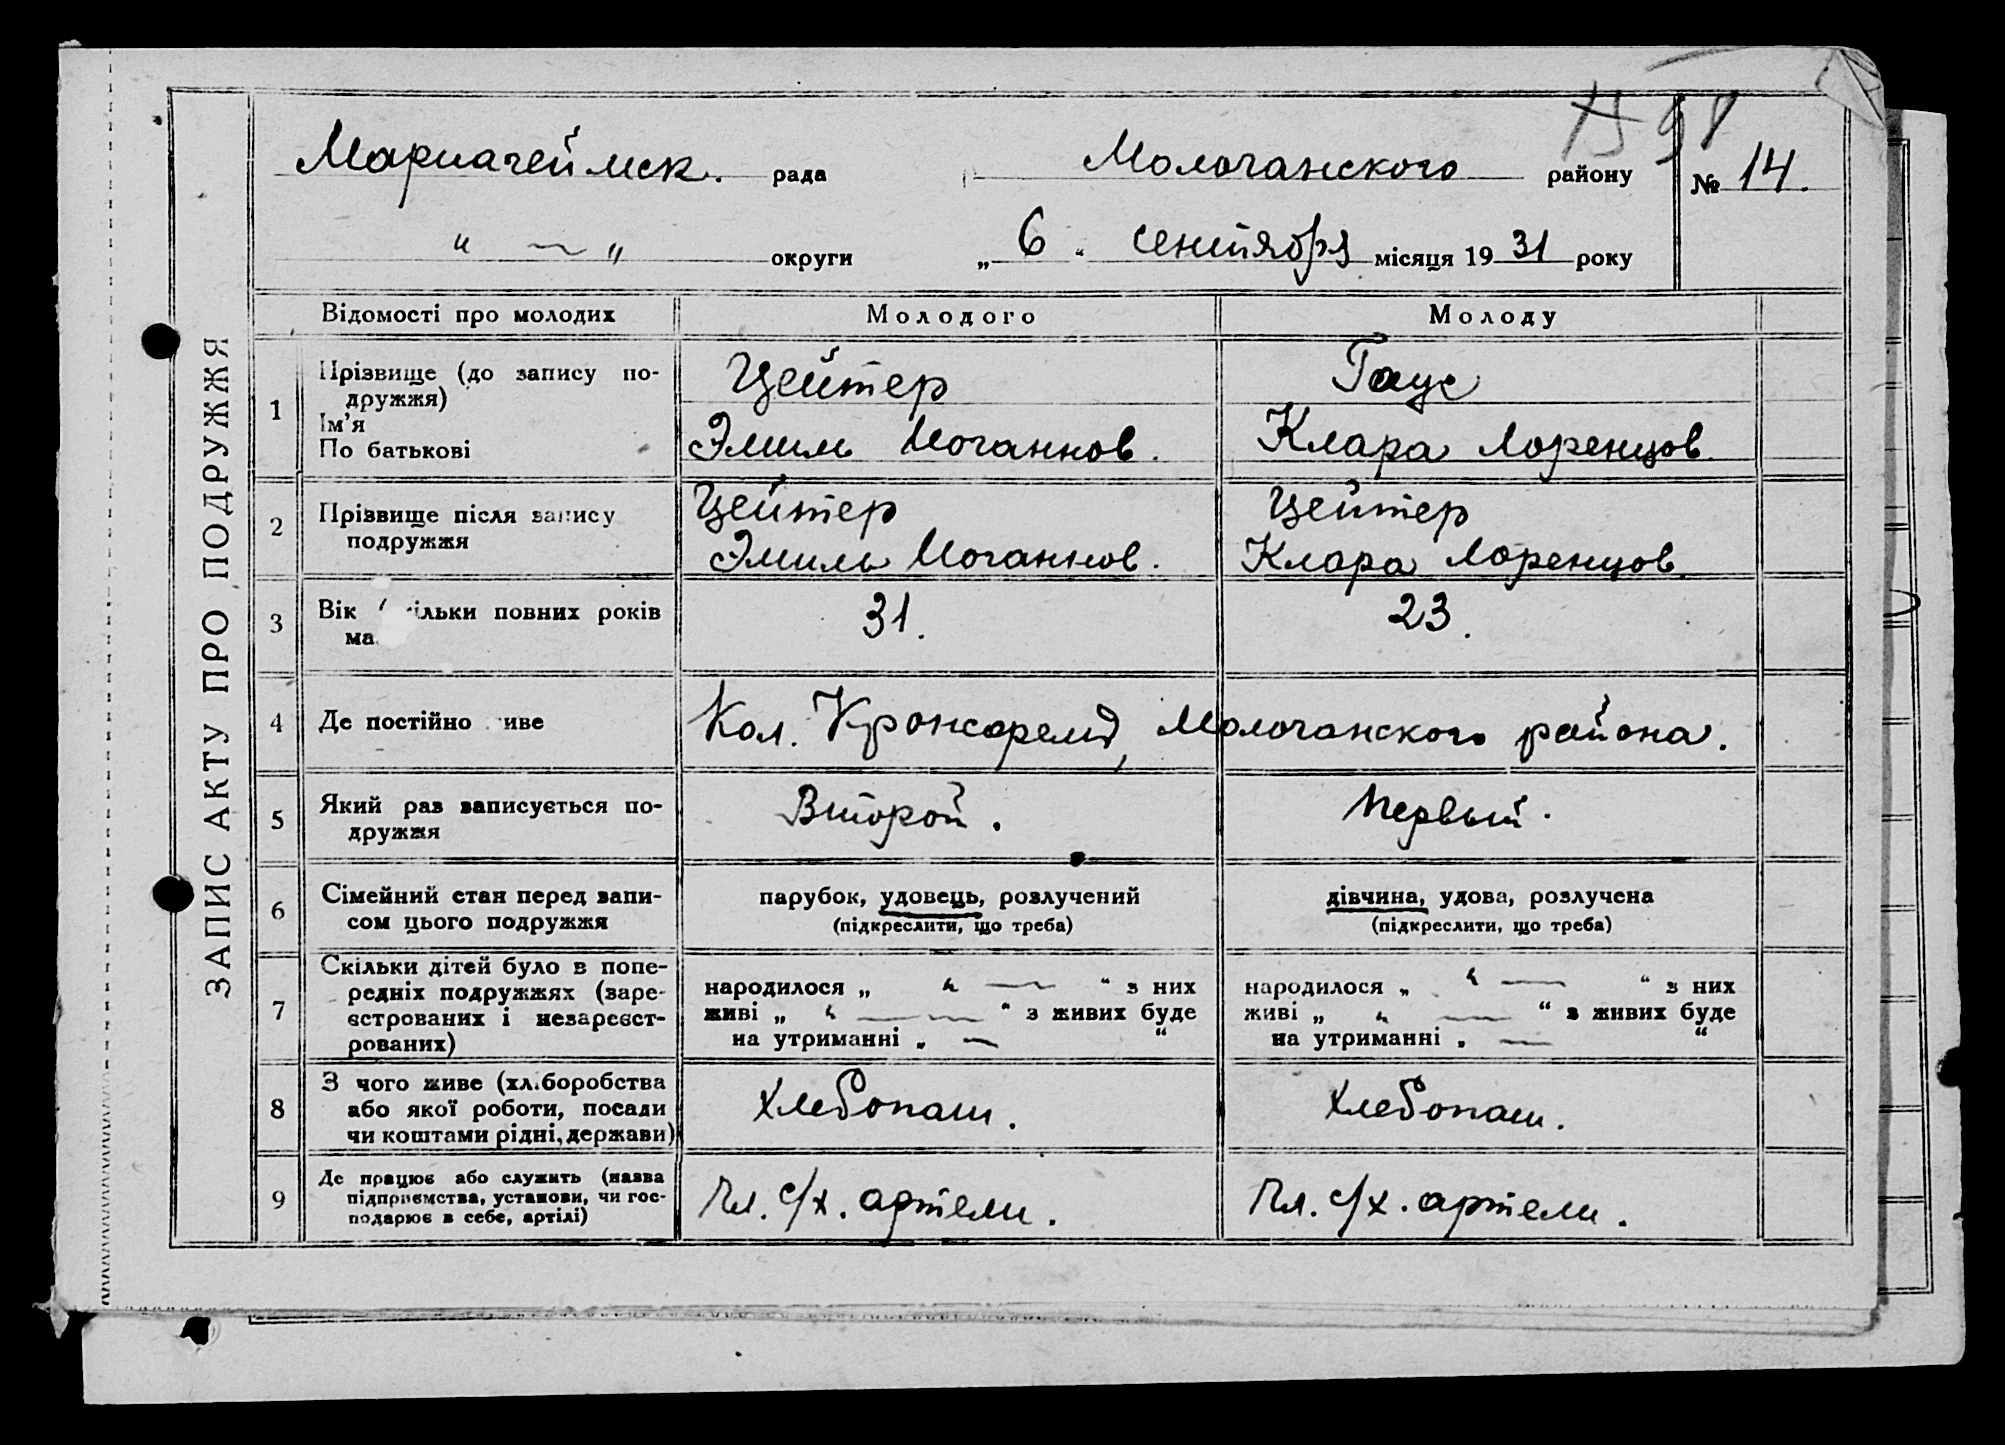 1598
Мариагеймск. рада Молочанского району № 14.
" — " округи „ 6 " сентября місяця 1931 року
ЗАПИС АКТУ ПРО ПОДРУЖЖЯ
Відомості про молодих Молодого Молоду
1 Прізвище (до запису по- Цейтер Гаус
дружжя)
Ім'я
По батькові Эмиль Иоганнов. Клара Лоренцов.
2 Прізвище після запису Цейтер Цейтер
подружжя Эмиль Иоганнов. Клара Лоренцов.
3 Вік ільки повних років 31. 23.
ма
4 Де постійно иве Кол. Кронсфельд, Молочанского района.
5 Який раз записується по- Второй. Первый.
дружжя
6 Сімейний стан перед запи- парубок, удовець, розлучений дівчина, удова, розлучена
сом цього подружжя (підкреслити, що треба) (підкреслити, що треба)
7 Скільки дітей було в попе-
редніх подружжях (заре- народилося „ " — " з них народилося „ " — " з них
єстрованих і незареєст- живі „ " — — " з живих буде живі „ " — " з живих буде
рованих) на утриманні „ — " на утриманні „ — "
8 З чого живе (хліборобства
або якої роботи, посади Хлебопаш. Хлебопаш.
чи коштами рідні, держави)
9 Де працює або служить (назва
підприємства, установи, чи гос- Чл. с/х. артели. Чл. с/х. артели.
подарює в себе, артілі)